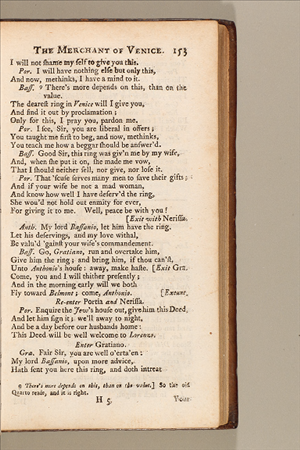 THE MERCHANT OF VENICE. 153
I will not shame my self to give you this.
Por. I will have nothing else but only this,
And now, methinks, I have a mind to it.
Bass. There's more depends on this, than on the
value.
The dearest ring in Venice will I give you,
And find it out by proclamation;
Only for this, I pray you, pardon me.
Por. I see, Sir, you are liberal in offers;
You taught me first to beg, and now, methinks,
You teach me how a beggar should be answer'd.
Bass. Good Sir, this ring was giv'n me by my wife,
And, when she put it on, she made me vow,
That I should neither sell, nor give, nor lose it.
Por. That 'scuse serves many men to save their gifts;
And if your wife be not a mad woman,
And know how well I have deserv'd the ring,
She wou'd not hold out enmity for ever,
For giving it to me. Well, peace be with you!
[Exit with Nerissa.
Anth. My lord Bassanio, let him have the ring.
Let his deservings, and my love withal,
Be valu'd 'gainst your wife's commandement.
Bass. Go, Gratiano, run and overtake him,
Give him the ring; and bring him, if thou can'st,
Unto Anthonio's house: away, make haste. [Exit Gra.
Come, you and I will thither presently;
And in the morning early will we both
Fly toward Belmont; come, Anthonio. [Exeunt.
Re-enter Portia and Nerissa.
Por. Enquire the Jew's house out, give him this Deed,
And let him sign it; we'll away to night,
And be a day before our husbands home:
This Deed will be well welcome to Lorenzo.
Enter Gratiano.
Gra. Fair Sir, you are well o'erta'en:
My lord Bassanio, upon more advice,
Hath sent you here this ring, and doth intreat
There's more depends on this, than on the value.] So the old
Quarto reads, and it is right.
H 5 Your